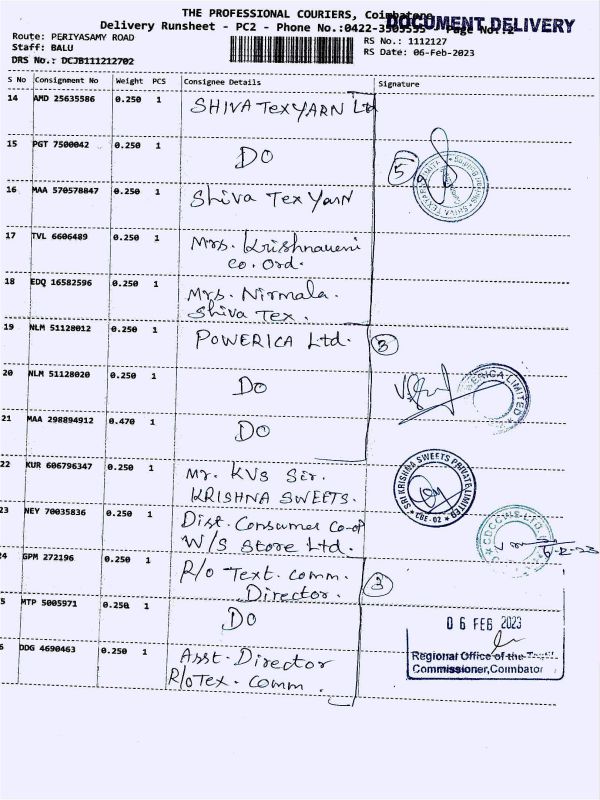 THE PROFESSIONAL COURIERS, Coimbatore
DOCUMENT DELIVERY
Delivery Runsheet - PC2 - Phone No.:0422-3505555 Page No.:2
Route: PERIYASAMY ROAD
RS No.: 1112127
Staff: BALU
RS Date: 06-Feb-2023
DRS No.: DCJB111212702
S No Consignment No Weight PCS Consignee Details Signature
14 AMD 25635586 0.250 1 SHIVA TEXYARN Ltd
15 PGT 7500042 0.250 1 DO
5
SHIVA TEXYARN LIMITED
16 MAA 570578847 0.250 1 Shiva Tex Yarn
17 TVL 6606489 0.250 1 Mrs. Krishnaveni
co. Ord.
18 EDQ 16582596 0.250 1 Mrs. Nirmala.
Shiva Tex.
19 NLM 51128012 0.250 1 POWERICA Ltd.
3
20 NLM 51128020 0.250 1 DO
ERICA LIMITED
21 MAA 298894912 0.470 1 DO
22 KUR 606796347 0.250 1 Mr. KVS Sir.
KRISHNA SWEETS.
SRI KRISHNA SWEETS PRIVATE LIMITED
CBE-02
23 NEY 70035836 0.250 1 Dist. Consumer Co-op
W/S Store Ltd.
C.D.C.C.W.S. LTD.
6-2-23
24 GPM 272196 0.250 1 R/o Text. comm.
Director.
3
5 MTP 5005971 0.250 1 DO
06 FEB 2023
6 DDG 4690463 0.250 1 Asst. Director
R/o Tex. Comm.
Regional Office of the Textil
Commissioner, Coimbator